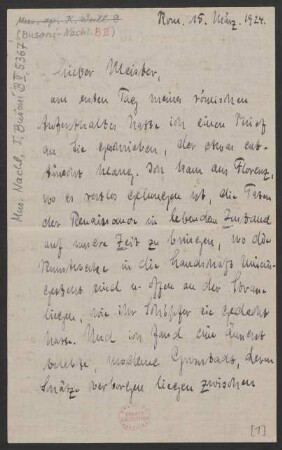 Mus. ep. K. Weill 9
(Busoni-Nachl. B II)
Mus. Nachl. F. Busoni B II, 5367
Rom, 15. März, 1924.
Lieber Meister,
am ersten Tag meines römischen
Aufenthaltes hatte ich einen Brief
an Sie geschrieben, der etwas ent-
täuscht klang. Ich kam aus Florenz,
wo es restlos gelungen ist, die Taten
der Renaissance in lebendem Zustand
auf unsere Zeit zu bringen, wo die
Kunstwerke in die Landschaft hinein-
gestellt sind u. offen an der Strasse
liegen, wie ihr Schöpfer es gedacht
hatte. Und ich fand eine äusserst
belebte, moderne Grosstadt, deren
Schätze verborgen liegen zwischen
[1]